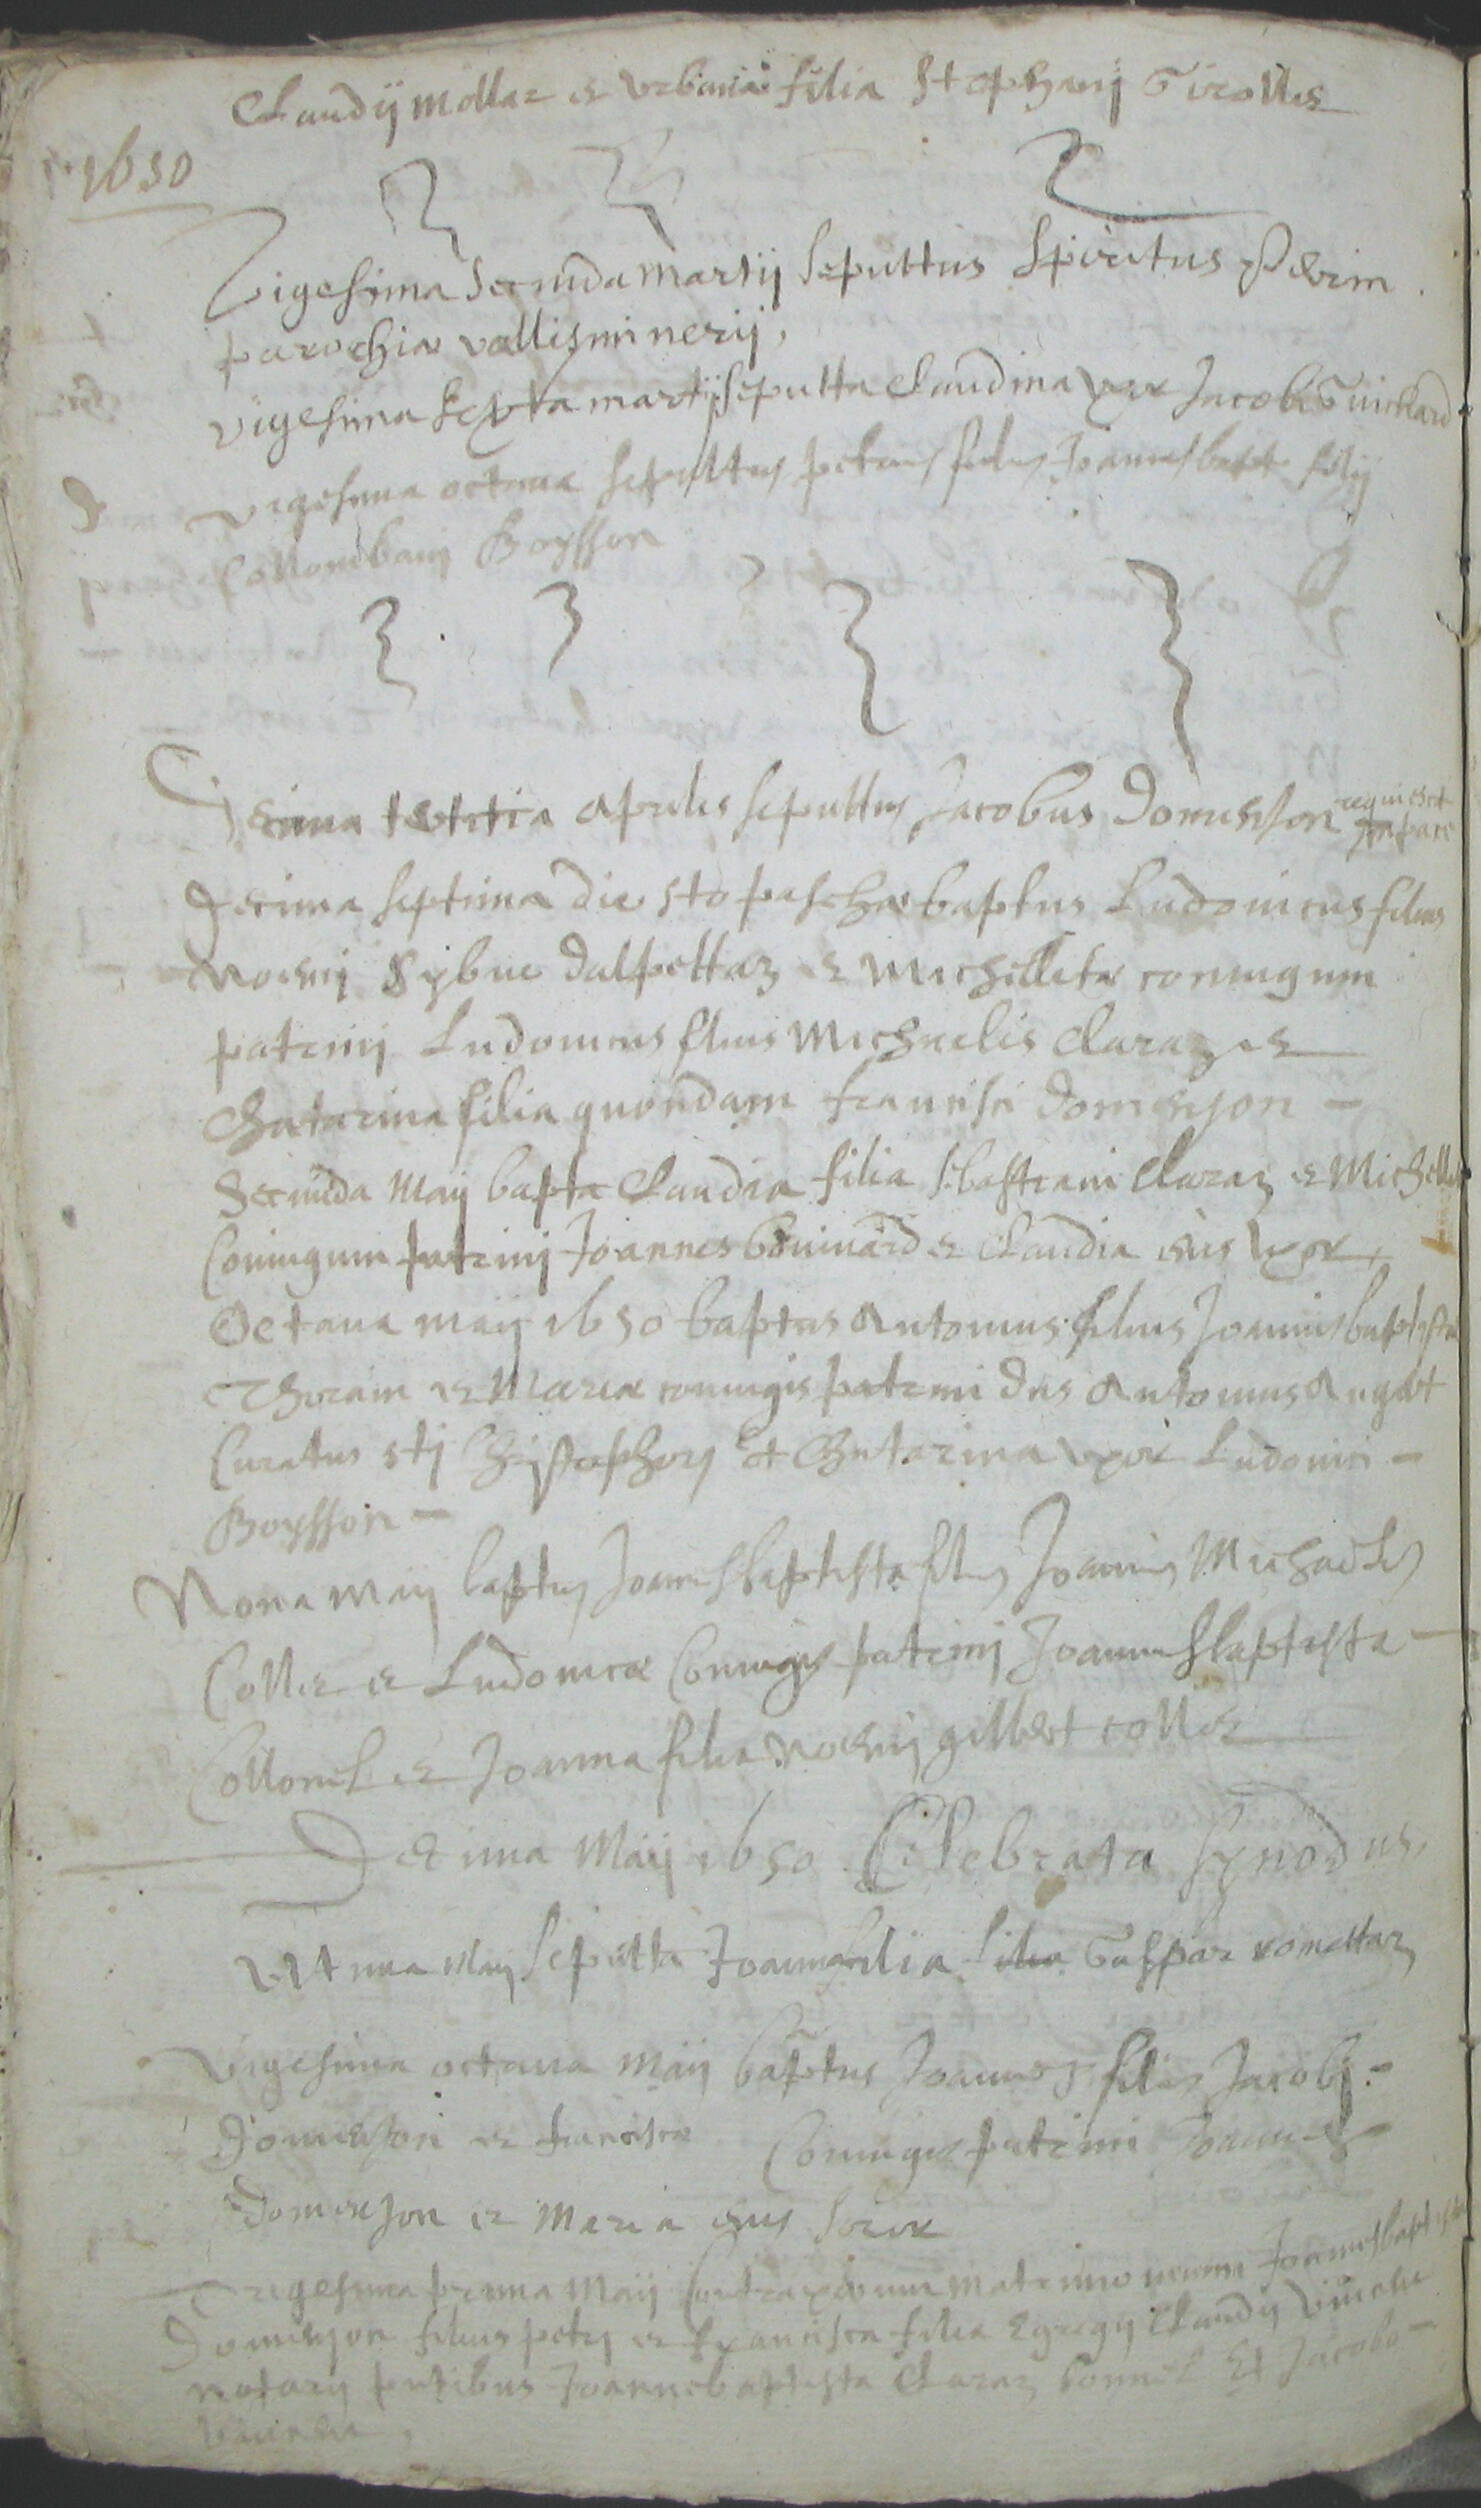 Claudij mollar et Urbania filia Stephanij Girollet
1650
Vigesima secunda martij sepultus Spiritus
parochiæ vallisminerij,
vigesima sexta martij sepulta Claudina uxor Jacobi Guichard
vigesima octava sepultus petrus filius Joannisbapt filij
Collombanij Boysson
Decima tertia aprilis sepultus Jacobus Domenjon requiescat in pace
Decima septima die sto paschæ baptus Ludovicus filius
Sybue Dalpettaz et Michilleta coniugum
patrinj Ludovicus filius Michaelis Claraz et
Chatarina filia quondam francisci Domenjon -
Secunda Maij bapta Claudia filia sebastiani Claraz et Michella
Coniugum patrinj Joannes bouinard et Claudia eius uxor,
Octava maij 1650 baptus Antonius filius Joannisbaptistæ
Thorain et Mariæ coniugis patrini Dns Antonius Augert
Curatus stj Christophorj et Chatarina uxor Ludovici -
Boysson -
Nona maij baptus Joannesbaptista filius Joannis Michaelis
Collet et Ludovicæ Coniugis patrinj Joannesbaptista -
Collomb et Joanna filia gilbert collet
Decima Maij 1650 Celebrata Synodus,
Maij sepulta Joanna filia Gaspar romettaz
Vigesima octava Maij baptus Joannes filius Jacobj -
Domenjon et francisca Coniuges patrini Joannes
Domenjon et Maria eius soror
Trigesima prima Maij Contraxerunt matrimonium Joannesbaptista
Domenjon filius petrj et francisca filia Egregij Claudij
notarij pntibus Joannebaptista Claraz bonnet Et Jacobo -